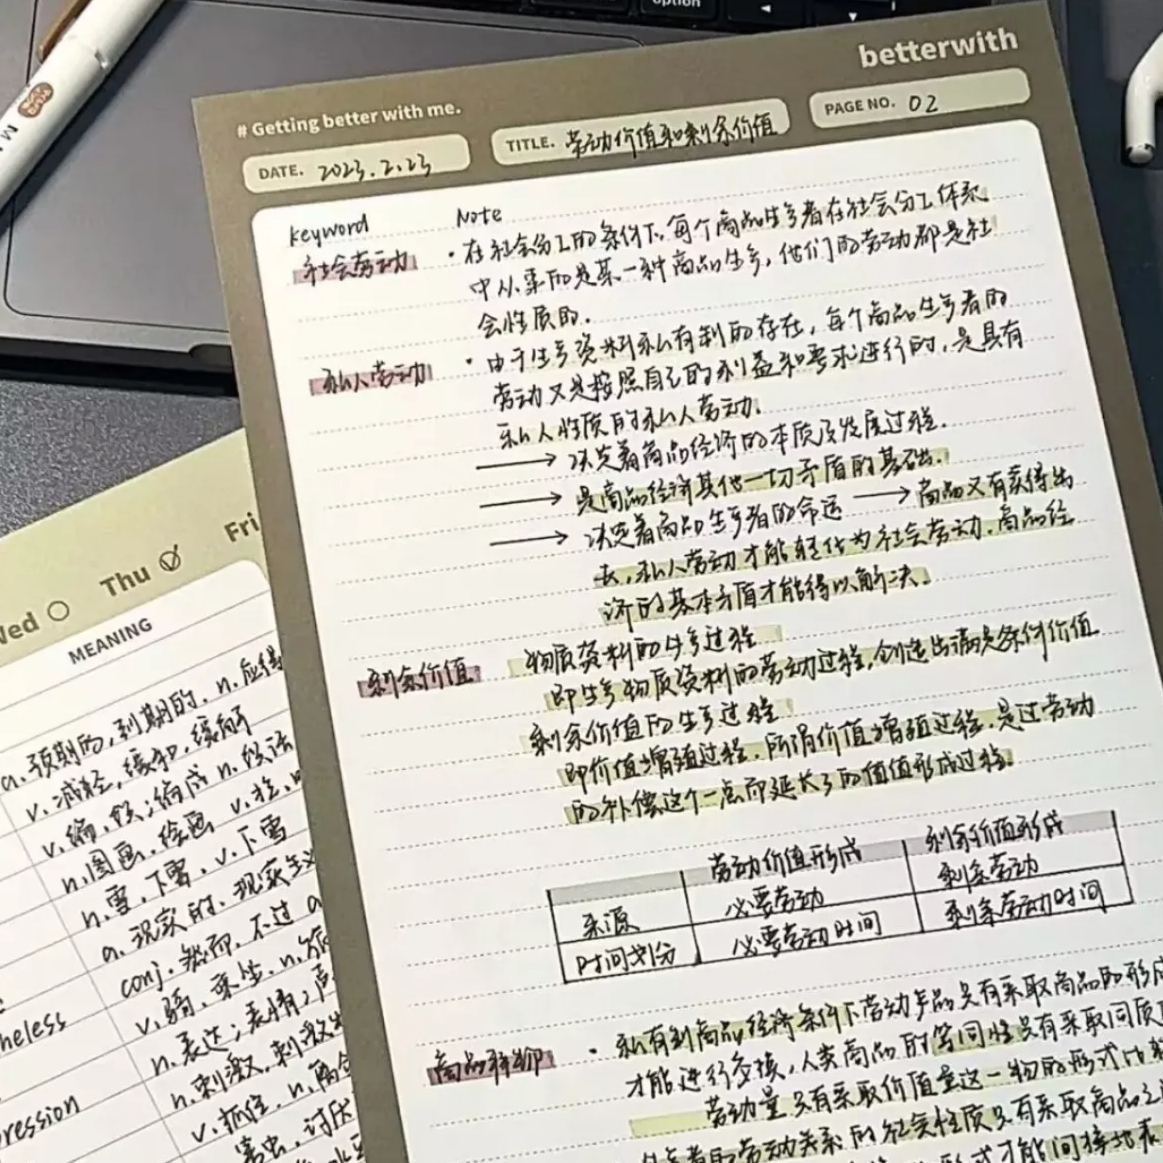 option
betterwith
# Getting better with me.
DATE. 2023.2.23
TITLE. 劳动价值和剩余价值
PAGE NO. 02
keyword
Note
社会劳动
·在社会分工的条件下,每个商品生产者在社会分工体系
中从事的是某一种商品生产,他们的劳动都是社
会性质的.
私人劳动
·由于生产资料私有制的存在,每个商品生产者的
劳动又是按照自己的利益和要求进行的,是具有
私人性质的私人劳动.
→ 决定着商品经济的本质及发展过程.
→ 是商品经济其他一切矛盾的基础.
→ 决定着商品生产者的命运 → 商品又有卖得出
去,私人劳动才能轻化为社会劳动.商品经
济的基本矛盾才能得以解决.
剩余价值
物质资料的生产过程
即生产物质资料的劳动过程,创造出满足条件价值
剩余价值的生产过程
即价值增殖过程.所谓价值增殖过程.是过劳动
的补偿这个一点而延长了的值值形成过程.
劳动价值形成
剩余价值形成
来源
必要劳动
剩余劳动
时间划分
必要劳动时间
剩余劳动时间
商品拜物
·私有制商品经济条件下劳动产品只有采取商品的形
才能进行交换,人类商品的等同性只有采取同质
劳动量只有采取价值量这一物的形式比
劳动关系的社会性质只有采取商品之
形式才能间接地表
Wed
Thu
Fri
MEANING
a.预期的,到期的.n.应得
v.减轻,缓和,缓解
v.编,
n.图画.绘画
n.雪,下雪,v.下雪
a.现实的.现实
conj.然而,不过
v.骑,乘坐.n.
n.表达;表情;
n.刺激,刺激
v.抓住.n.
害虫,讨厌
heless
ression